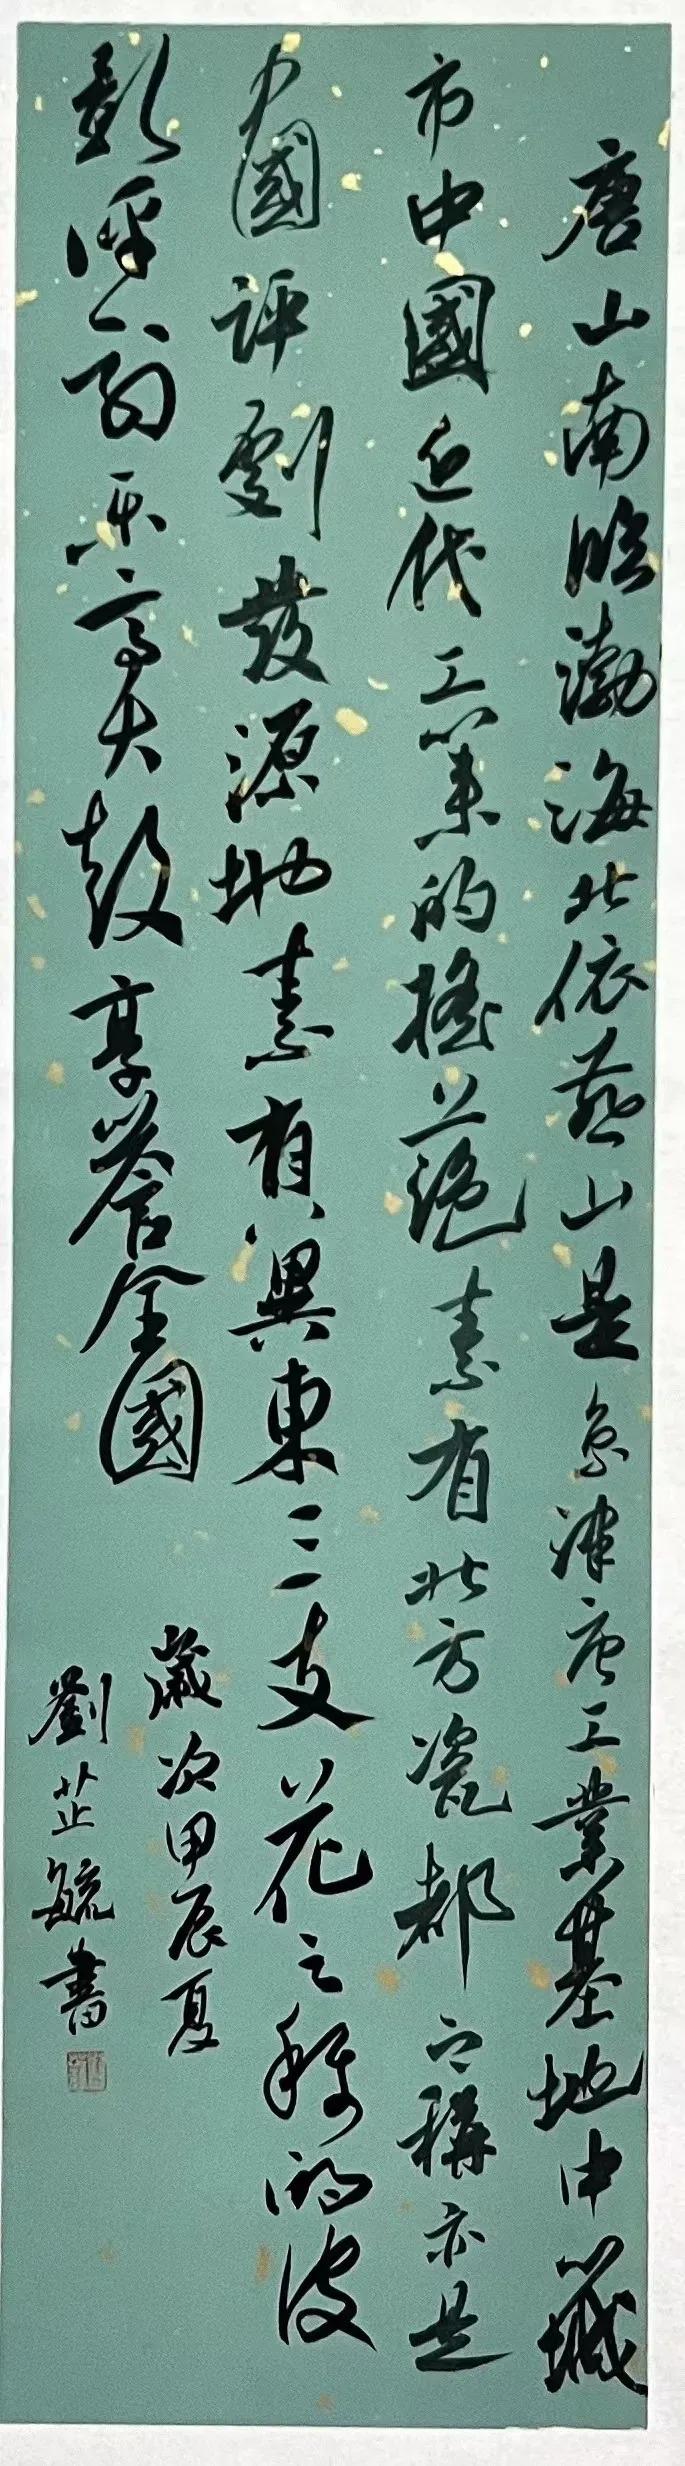 唐山南臨渤海北依燕山是京津唐工業基地中城
市中國近代工業的搖籃素有北方瓷都之稱亦是
中國評劇發源地素有冀東三支花之稱的皮
影評劇樂亭大鼓享譽全國
歲次甲辰夏
劉芷毓書